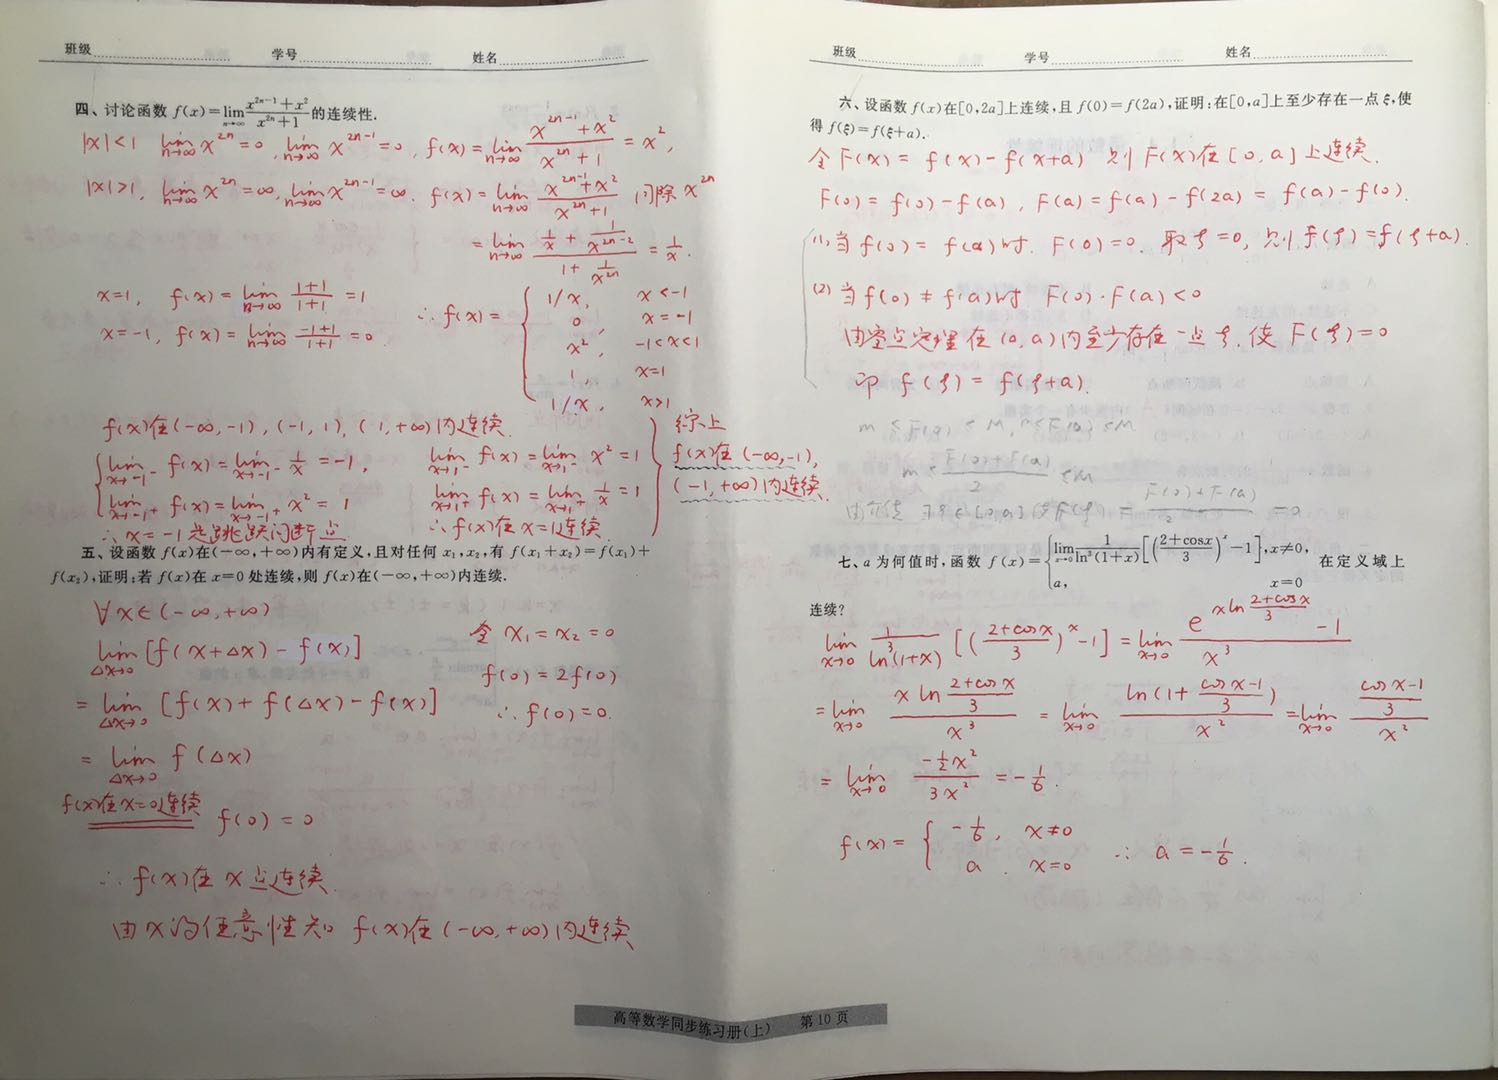 班级 学号 姓名
四、讨论函数 f(x)=lim_{n→∞} (x^{2n-1}+x^2)/(x^{2n}+1) 的连续性.
|x|<1 lim_{n→∞} x^{2n}=0, lim_{n→∞} x^{2n-1}=0, f(x)=lim_{n→∞} (x^{2n-1}+x^2)/(x^{2n}+1) = x^2,
|x|>1, lim_{n→∞} x^{2n}=∞, lim_{n→∞} x^{2n-1}=∞. f(x)=lim_{n→∞} (x^{2n-1}+x^2)/(x^{2n}+1) 同除 x^{2n}
= lim_{n→∞} (1/x + 1/x^{2n-2})/(1 + 1/x^{2n}) = 1/x.
x=1, f(x)=lim_{n→∞} (1+1)/(1+1) = 1
x=-1, f(x)=lim_{n→∞} (-1+1)/(1+1) = 0
∴ f(x)= { 1/x, x<-1
0, x=-1
x^2, -1<x<1
1, x=1
1/x, x>1
f(x)在(-∞,-1),(-1,1),(1,+∞)内连续.
lim_{x→-1^-} f(x)=lim_{x→-1^-} 1/x = -1, lim_{x→1^-} f(x)=lim_{x→1^-} x^2=1
lim_{x→-1^+} f(x)=lim_{x→-1^+} x^2 = 1 lim_{x→1^+} f(x)=lim_{x→1^+} 1/x=1
∴ x=-1 是跳跃间断点 ∴ f(x)在x=1连续.
综上
f(x)在(-∞,-1),
(-1,+∞)内连续.
五、设函数 f(x)在(-∞,+∞)内有定义,且对任何 x_1,x_2,有 f(x_1+x_2)=f(x_1)+
f(x_2),证明:若 f(x)在 x=0 处连续,则 f(x)在(-∞,+∞)内连续.
∀x∈(-∞,+∞)
lim_{Δx→0} [f(x+Δx)-f(x)]
= lim_{Δx→0} [f(x)+f(Δx)-f(x)]
= lim_{Δx→0} f(Δx)
f(x)在x=0连续 f(0)=0
令 x_1=x_2=0
f(0)=2f(0)
∴ f(0)=0.
∴ f(x)在 x 点连续.
由x的任意性知 f(x)在(-∞,+∞)内连续
班级 学号 姓名
六、设函数 f(x)在[0,2a]上连续,且 f(0)=f(2a),证明:在[0,a]上至少存在一点 ξ,使
得 f(ξ)=f(ξ+a).
令 F(x)=f(x)-f(x+a) 则 F(x)在[0,a]上连续.
F(0)=f(0)-f(a), F(a)=f(a)-f(2a)=f(a)-f(0).
(1) 当 f(0)=f(a)时. F(0)=0. 取ξ=0, 则f(ξ)=f(ξ+a).
(2) 当 f(0)≠f(a)时 F(0)·F(a)<0
由零点定理在(0,a)内至少存在一点ξ. 使 F(ξ)=0
即 f(ξ)=f(ξ+a).
m≤F(0)≤M, m≤F(a)≤M
m≤ (F(0)+F(a))/2 ≤M
∃ξ∈[0,a] 使F(ξ)= (F(0)+F(a))/2 =0
七、a 为何值时,函数 f(x)={ lim_{x→0} 1/ln^3(1+x) [((2+cosx)/3)^x-1], x≠0, 在定义域上
a, x=0
连续?
lim_{x→0} 1/ln^3(1+x) [((2+cosx)/3)^x-1] = lim_{x→0} (e^{x ln (2+cosx)/3} -1)/x^3
= lim_{x→0} (x ln (2+cosx)/3)/x^3 = lim_{x→0} ln(1+(cosx-1)/3)/x^2 = lim_{x→0} ((cosx-1)/3)/x^2
= lim_{x→0} (-1/2 x^2)/(3x^2) = -1/6.
f(x)= { -1/6, x≠0
a x=0 ∴ a=-1/6.
高等数学同步练习册(上) 第10页